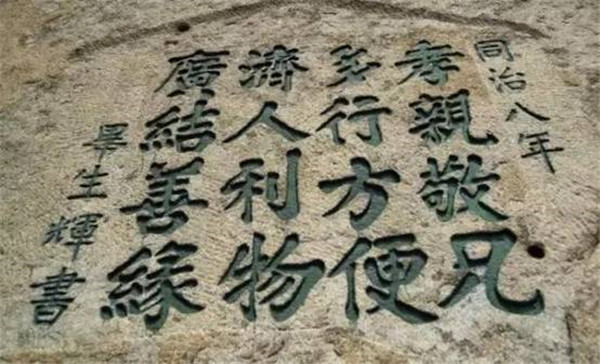 同治八年
孝親敬兄
多行方便
濟人利物
廣結善緣
畢生輝書